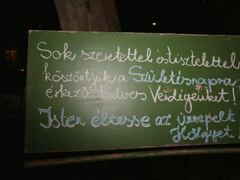 Sok szeretettel és tisztelettel
köszöntjük a Születésnapra
érkező kedves Vendégeinket!
Isten éltesse az ünnepelt
Hölgyet